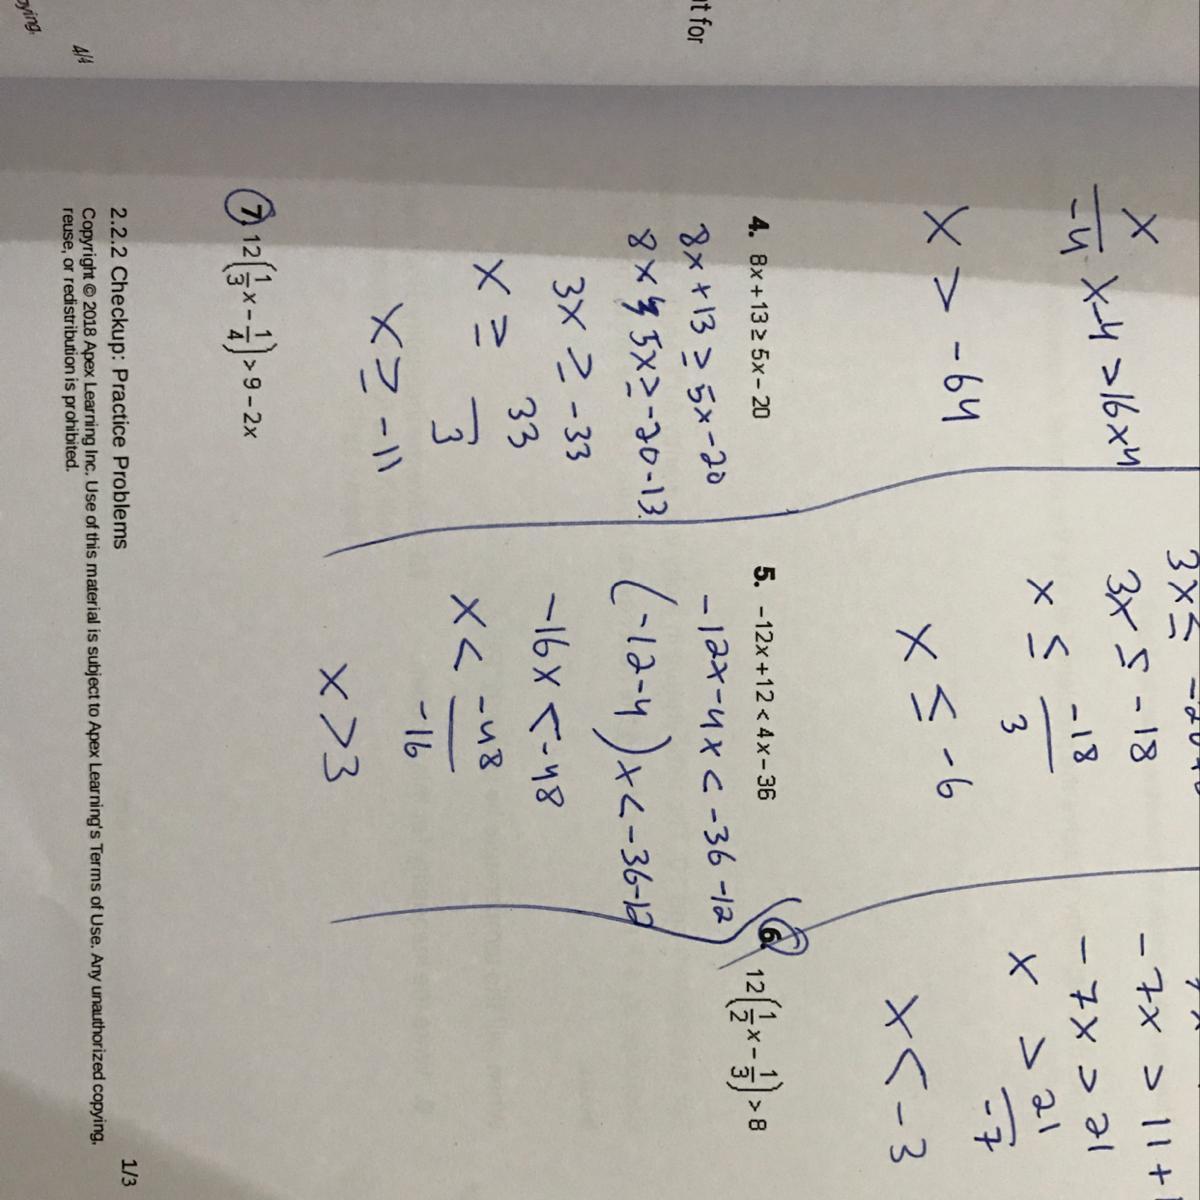 x/-4 x-4 > 16x4
x > -64
3x ≤
3x ≤ -18
x ≤ -18/3
x ≤ -6
-7x > 11+
-7x > 21
x > 21/-7
x < -3
4. 8x + 13 ≥ 5x – 20
8x + 13 ≥ 5x - 20
5x ≥ -20 - 13
3x ≥ -33
x ≥ 33/3
x ≥ -11
5. -12x + 12 < 4x – 36
-12x - 4x < -36 - 12
(-12-4)x < -36 - 12
-16x < -48
x < -48/-16
x > 3
6. 12(1/2x – 1/3) > 8
7. 12(1/3x – 1/4) > 9 – 2x
2.2.2 Checkup: Practice Problems
1/3
Copyright © 2018 Apex Learning Inc. Use of this material is subject to Apex Learning's Terms of Use. Any unauthorized copying,
reuse, or redistribution is prohibited.
for
4/4